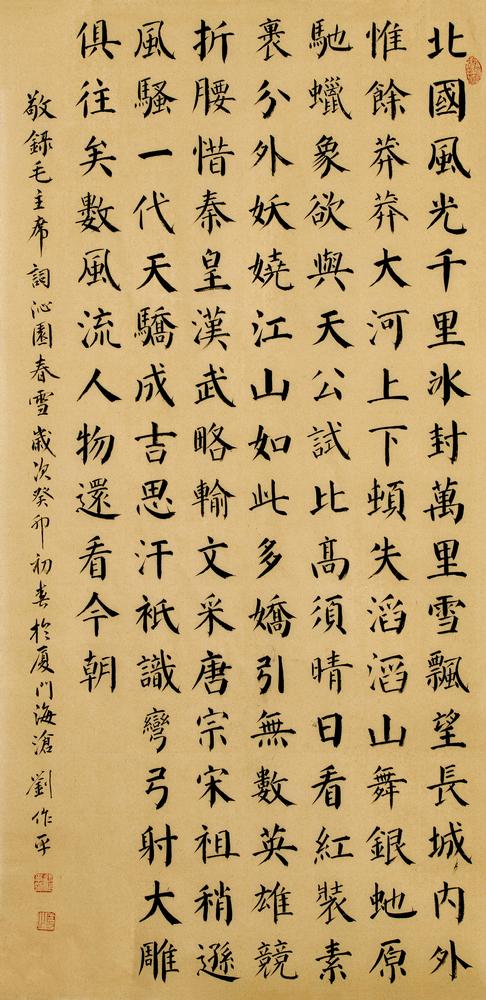 北國風光千里冰封萬里雪飄望長城内外
惟餘莽莽大河上下頓失滔滔山舞銀虵原
馳蠟象欲與天公試比髙須晴日看紅裝素
裹分外妖嬈江山如此多嬌引無數英雄競
折腰惜秦皇漢武略輸文采唐宗宋祖稍遜
風騷一代天驕成吉思汗衹識彎弓射大雕
俱往矣數風流人物還看今朝
敬録毛主席詞沁園春雪歲次癸卯初春於厦門海滄 劉作平